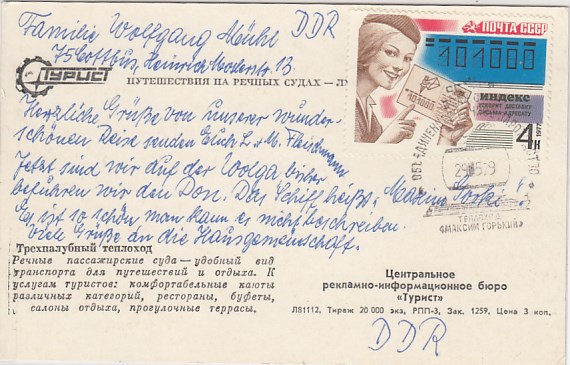 Familie Wolfgang Mühl DDR
75 Cottbus, Heinrich 13
ПОЧТА СССР
101000
101000
индекс
ускорит доставку
письма адресату
4к
1977
ТУРИСТ
ПУТЕШЕСТВИЯ НА РЕЧНЫХ СУДАХ —
Herzliche Grüße von unserer wunder-
schönen Reise senden Euch L. u. M.
Jetzt sind wir auf der Wolga bisher
befuhren wir den Don. Das Schiff heißt: Maxim Gorki!
Es ist so schön man kann es nicht beschreiben.
Viele Grüße an die Hausgemeinschaft.
ТЕПЛОХОД
«МАКСИМ ГОРЬКИЙ»
Трехпалубный теплоход
Речные пассажирские суда — удобный вид
транспорта для путешествий и отдыха. К
услугам туристов: комфортабельные каюты
различных категорий, рестораны, буфеты,
салоны отдыха, прогулочные террасы.
Центральное
рекламно-информационное бюро
«Турист»
Л81112. Тираж 20 000 экз., РПП-3, Зак. 1259, Цена 3 коп.
DDR